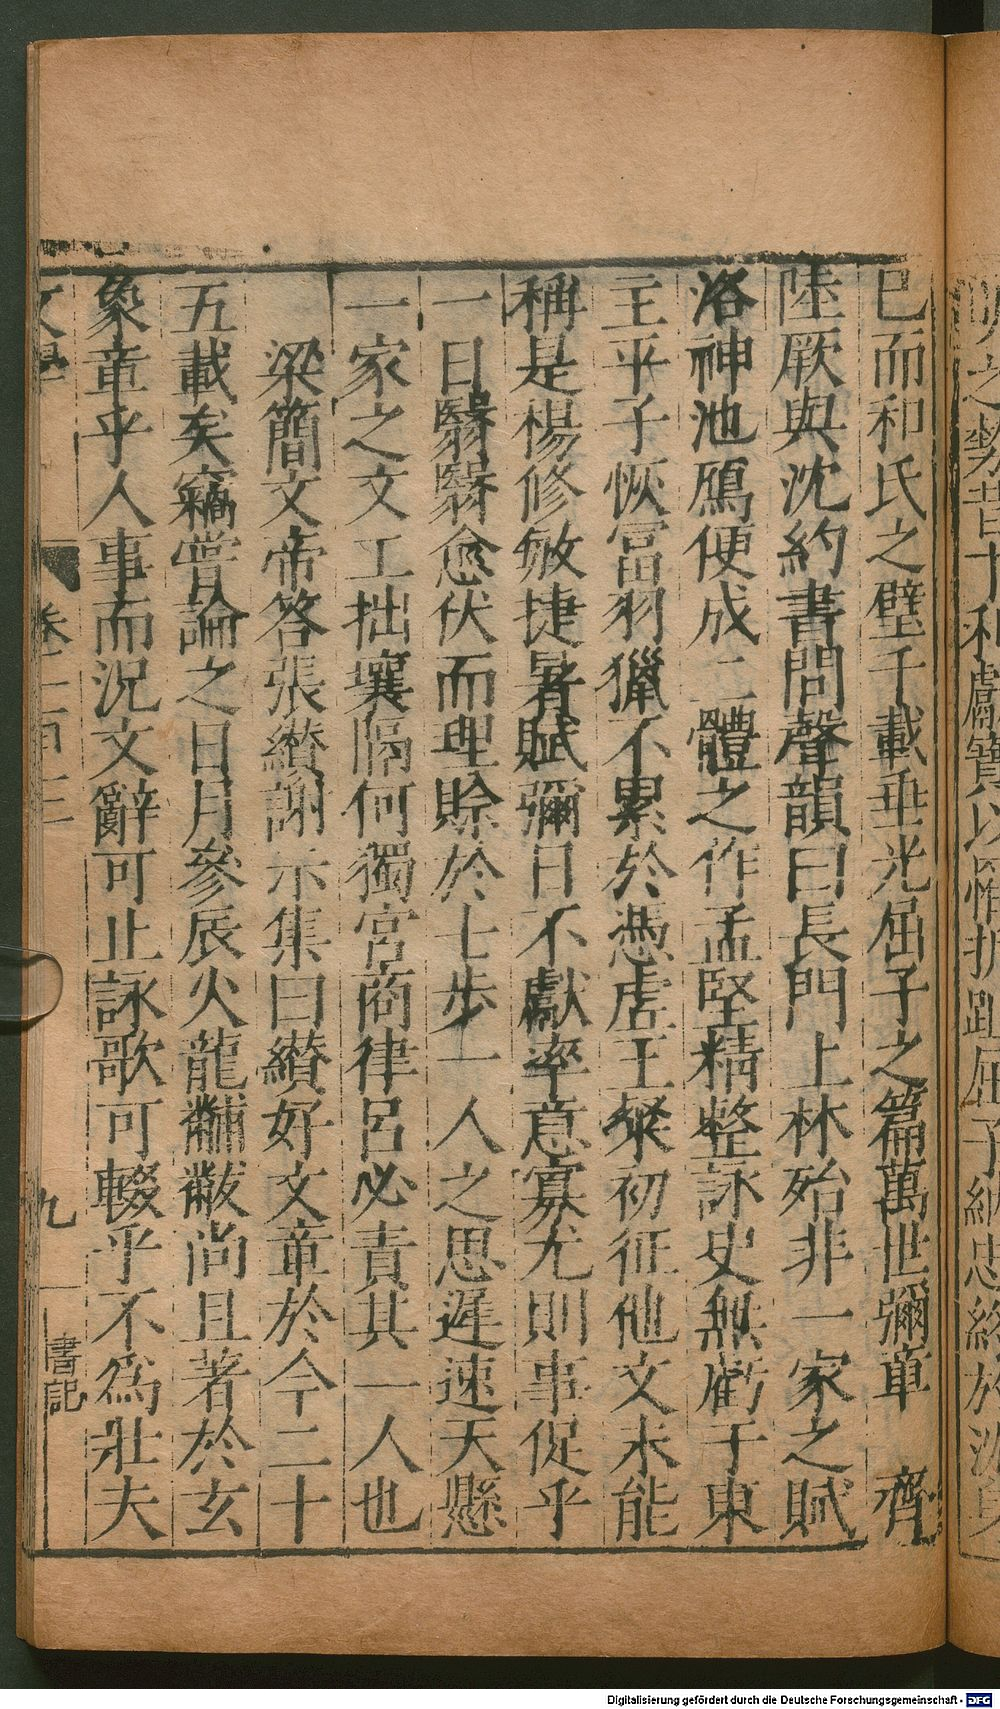 明之勢昔卞和獻寶以離刑趾屈子納忠終於沈身
已而和氏之璧千載垂光屈子之篇萬世彌章　齊
陸厥與沈約書問聲韻曰長門上林殆非一家之賦
洛神池鴈便成二體之作孟堅精整詠史無虧于東
主平子恢富羽獵不累於憑虛王粲初征他文未能
稱是楊修敏捷暑賦彌日不獻率意寡尤則事促乎
一日翳翳愈伏而理賒於七步一人之思遲速天懸
一家之文工拙壤隔何獨宮商律呂必責其一人也
梁簡文帝答張纘謝示集曰纘好文章於今二十
五載矣竊嘗論之日月參辰火龍黼黻尚且著於玄
象章乎人事而況文辭可止詠歌可輟乎不為壯夫
文學　卷一百三　九　書記
Digitalisierung gefördert durch die Deutsche Forschungsgemeinschaft - DFG